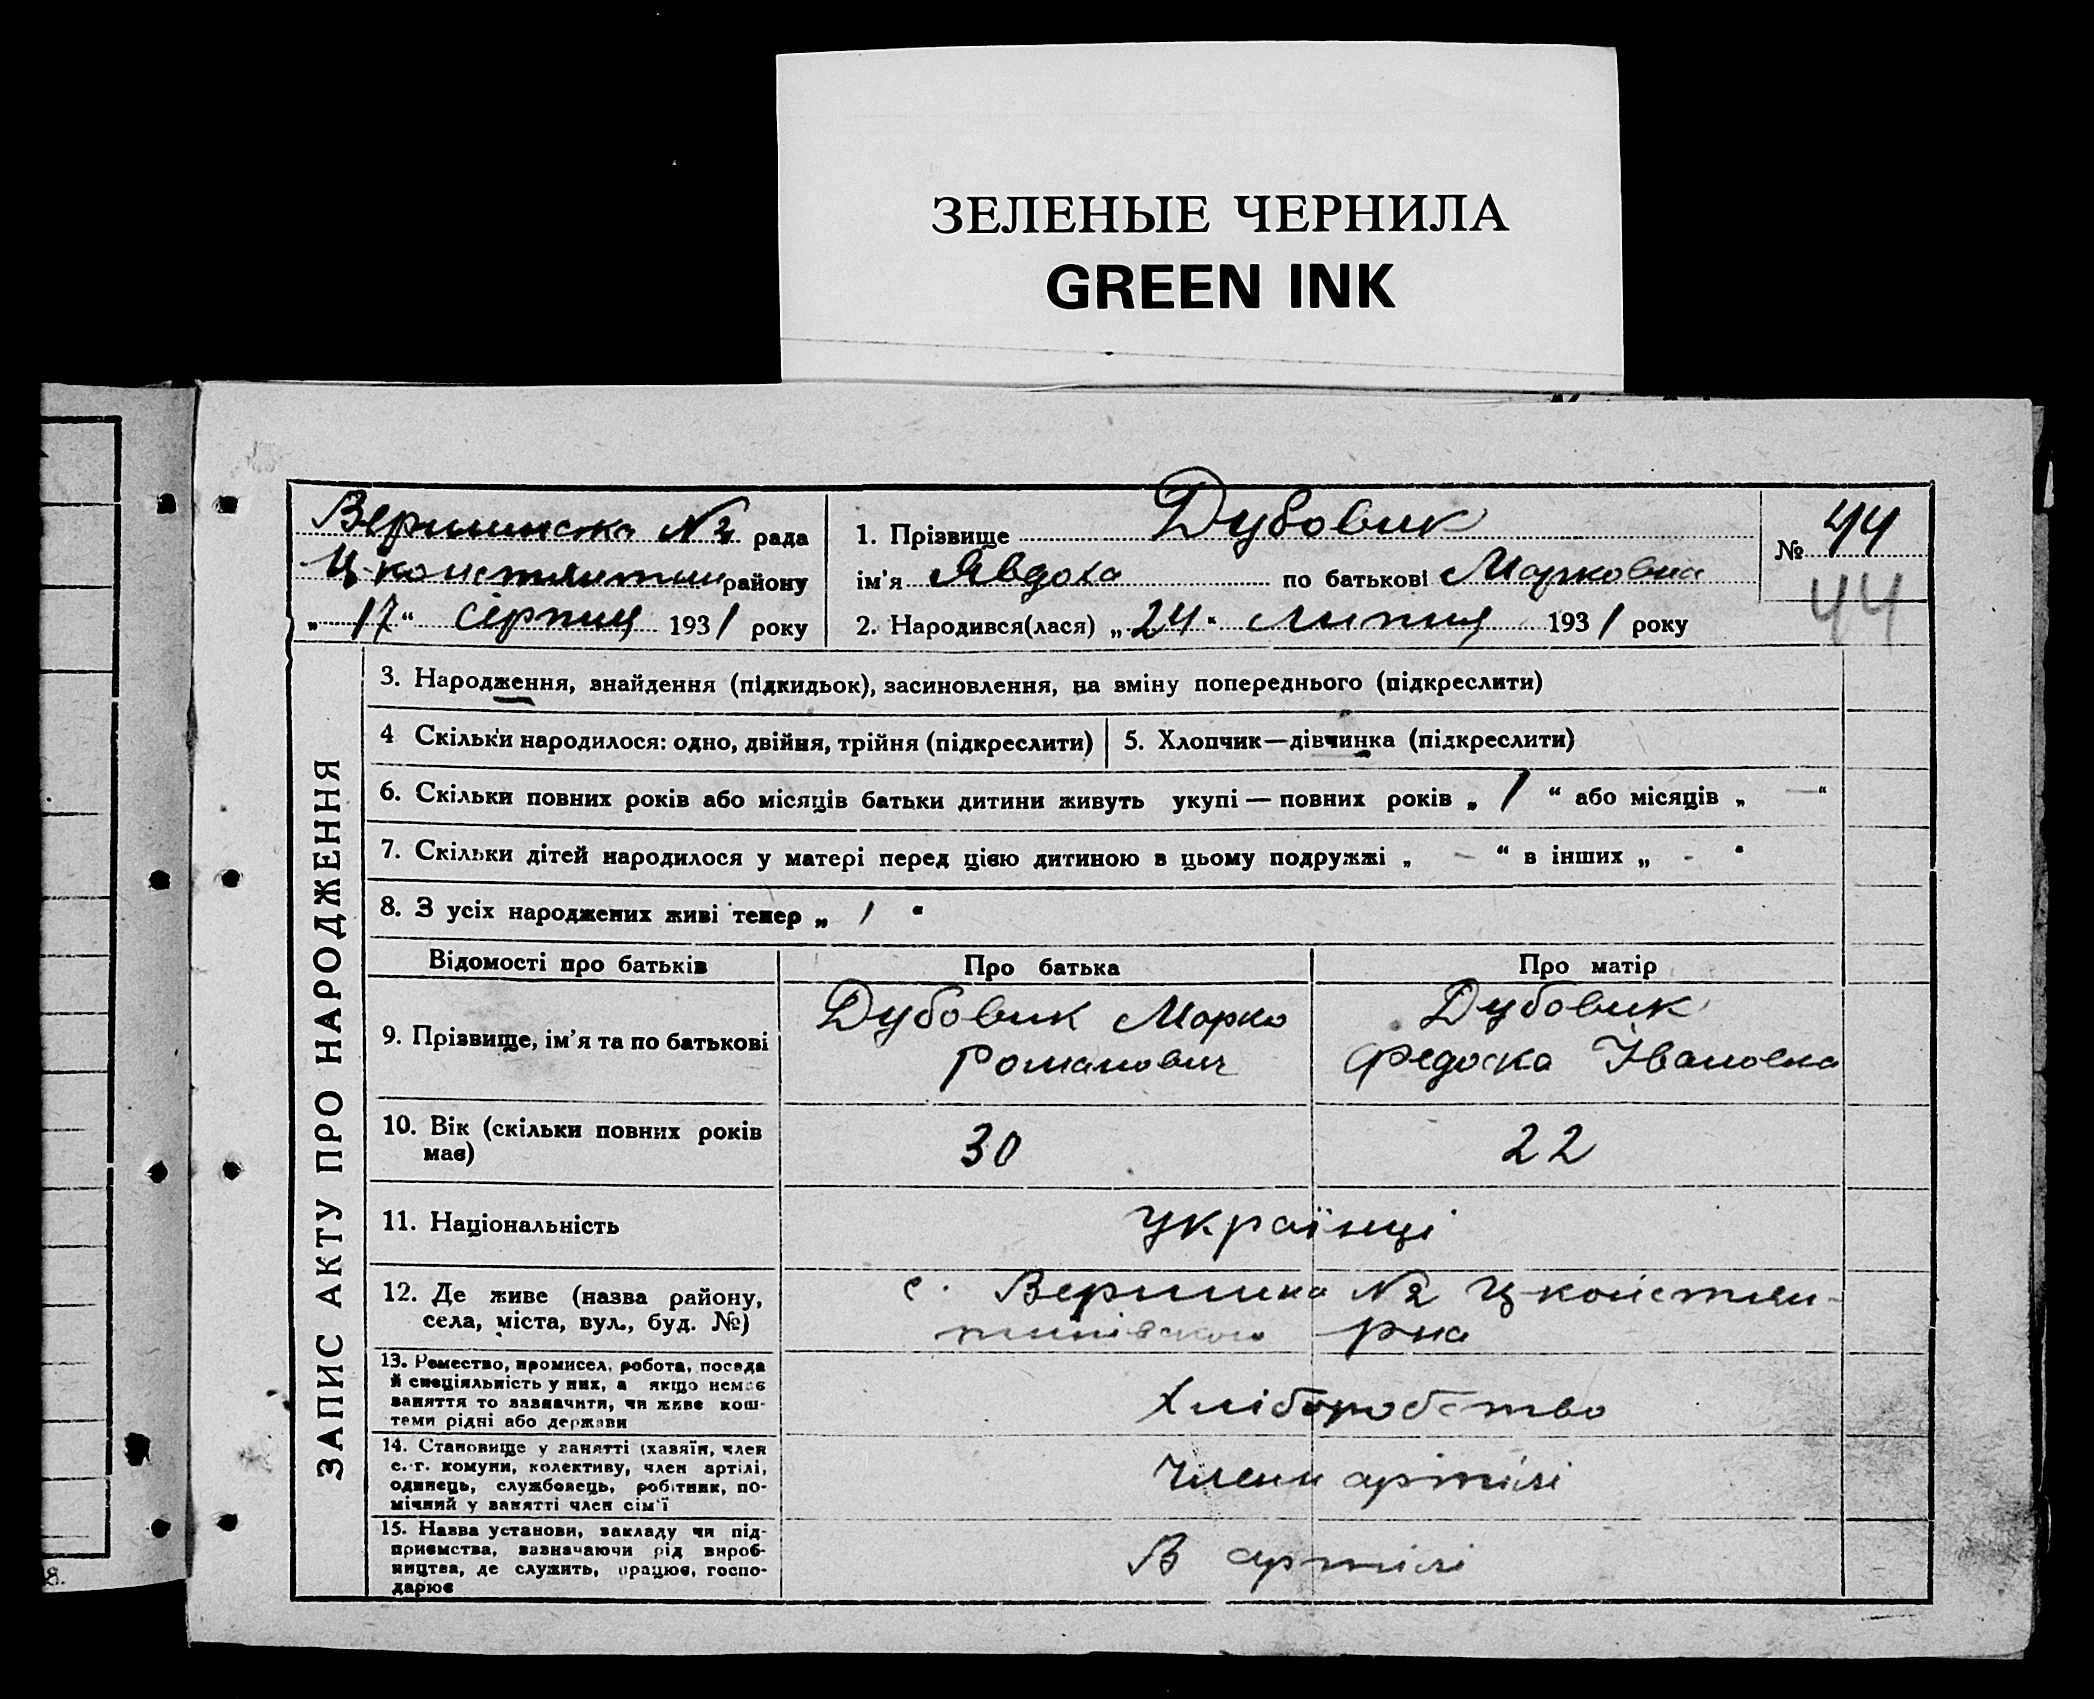 ЗЕЛЕНЫЕ ЧЕРНИЛА
GREEN INK
Вершинска №2 рада
Ц-константин району
„17“ серпня 1931 року
1. Прізвище Дубовик
ім'я Явдоха по батькові Марковна
2. Народився(лася) „24“ липня 1931 року
№ 44
44
ЗАПИС АКТУ ПРО НАРОДЖЕННЯ
3. Народження, знайдення (підкидьок), засиновлення, на зміну попереднього (підкреслити)
4 Скільки народилося: одно, двійня, трійня (підкреслити)
5. Хлопчик—дівчинка (підкреслити)
6. Скільки повних років або місяців батьки дитини живуть укупі — повних років „ 1 “ або місяців „ — “
7. Скільки дітей народилося у матері перед цією дитиною в цьому подружжі „ — “ в інших „ - “
8. З усіх народжених живі тепер „ 1 “
Відомості про батьків
Про батька
Про матір
9. Прізвище, ім'я та по батькові
Дубовик Марко
Романович
Дубовик
Федоска Івановна
10. Вік (скільки повних років
має)
30
22
11. Національність
Українці
12. Де живе (назва району,
села, міста, вул., буд. №)
с. Вершина №2 Ц-констян-
тинівського р-на
13. Ремество, промисел, робота, посада
й спеціяльність у них, а якщо немає
заняття то зазначити, чи живе кош-
тами рідні або держави
Хліборобство
14. Становище у занятті (хазяїн, член
с.-г. комуни, колективу, член артілі,
одинець, службовець, робітник, по-
мічний у занятті член сім'ї
Члени артілі
15. Назва установи, закладу чи під-
приємства, зазначаючи рід вироб-
ництва, де служить, працює, госпо-
дарює
В артілі
8.